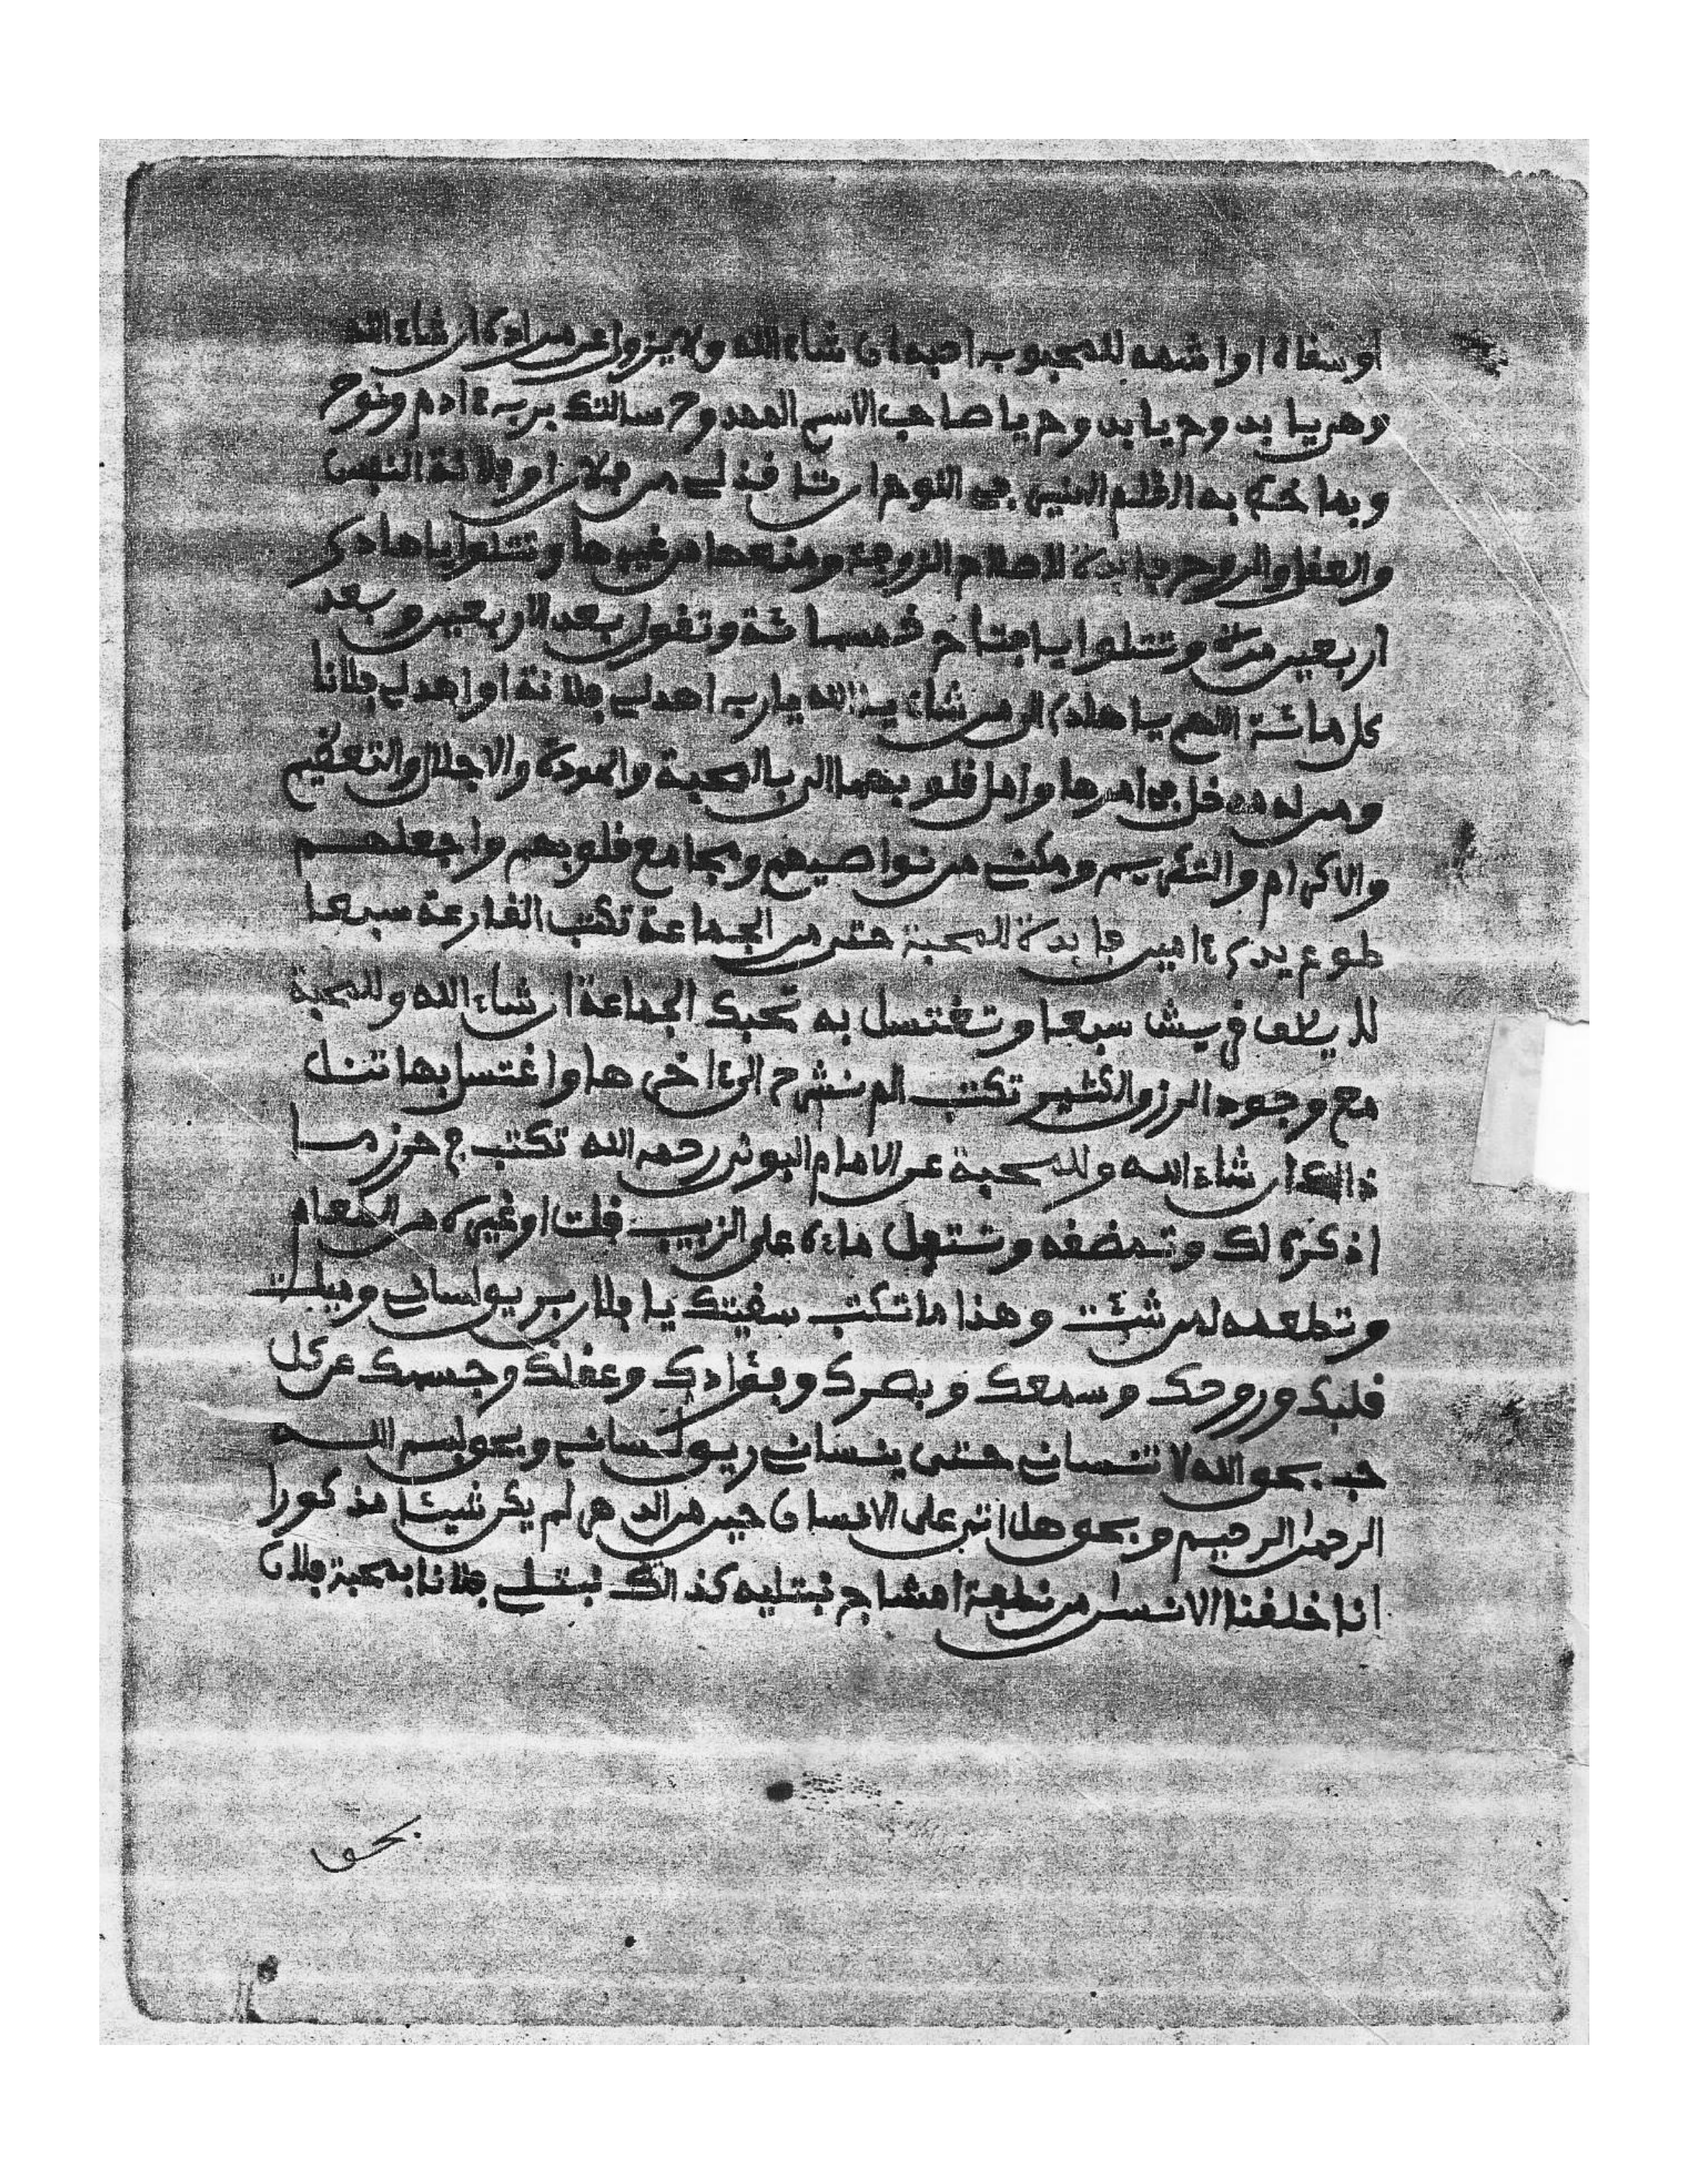 او سقاه او اشمه للمحبوب احبه ان شاء الله ولا يزول عن مراده ان شاء الله
وهي يا بدوح يا بدوح يا صاحب الاسم الممدوح سالتك برب ءادم ونوح
وبما خط به القلم في اللوح ان تاخذ لي من فلان او فلانة النفس
والعقل والروح فايدة لاصلاح الزوجة ومنعها من غيرها وتتلوا يا هادى
اربعين مرة وتتلوا يا فتاح خمسمائة وتقول بعد الاربعين وبعد
كل مائة اللهم يا هادى الى من شاء يا الله يا رب اهد لي فلانة او اهد لي فلانا
ومن له مدخل في امرها وامل قلوبهما الى بالمحبة والمودة والاجلال والتعظيم
والاكرام والتكريم ومكني من نواصيهم ومجامع قلوبهم واجعلهم
طوع يدى ءامين فايدة للمحبة حتى من الجماعة تكتب القارعة سبعا
لايلاف قريش سبعا وتغتسل به تحبك الجماعة ان شاء الله وللمحبة
مع وجود الرزق الكثير تكتب الم نشرح الى ءاخرها واغتسل بها تنل
ذالك ان شاء الله وللمحبة عن الامام البوني رحمه الله تكتب
اذكره لك وتمضغه وتتفل ماءه على الزبيب قلت او غيره من الطعام
وتطعمه لمن شئت وهذا ما تكتب سقيتك يا فلان بريق لساني وميلت
قلبك وروحك وسمعك وبصرك وفؤادك وعقلك وجسمك عن كل
حب بحق الله لا تنساني حتى ينساني ريق لساني وبحق بسم الله
الرحمن الرحيم وبحق هل اتى على الانسان حين من الدهر لم يكن شيئا مذكورا
انا خلقنا الانسان من نطفة امشاج نبتليه كذالك نبتلي فلانا بمحبة فلان
بحق